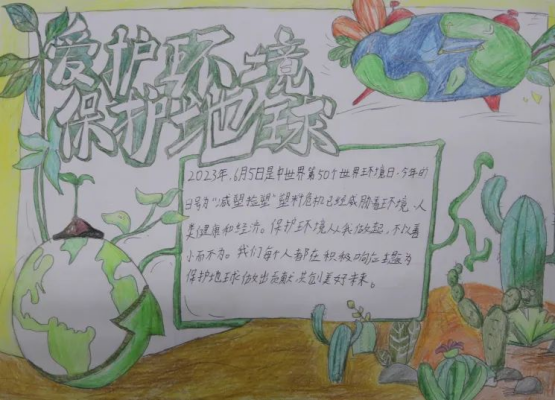 爱护环境
保护地球
2023年6月5日是中世界第50个世界环境日.今年的
口号为“减塑捡塑”塑料危机已经威胁着环境、人
类健康和经济。保护环境从我做起,不以善
小而不为。我们每个人都在积极响应主题为
保护地球做出贡献,共创美好未来。